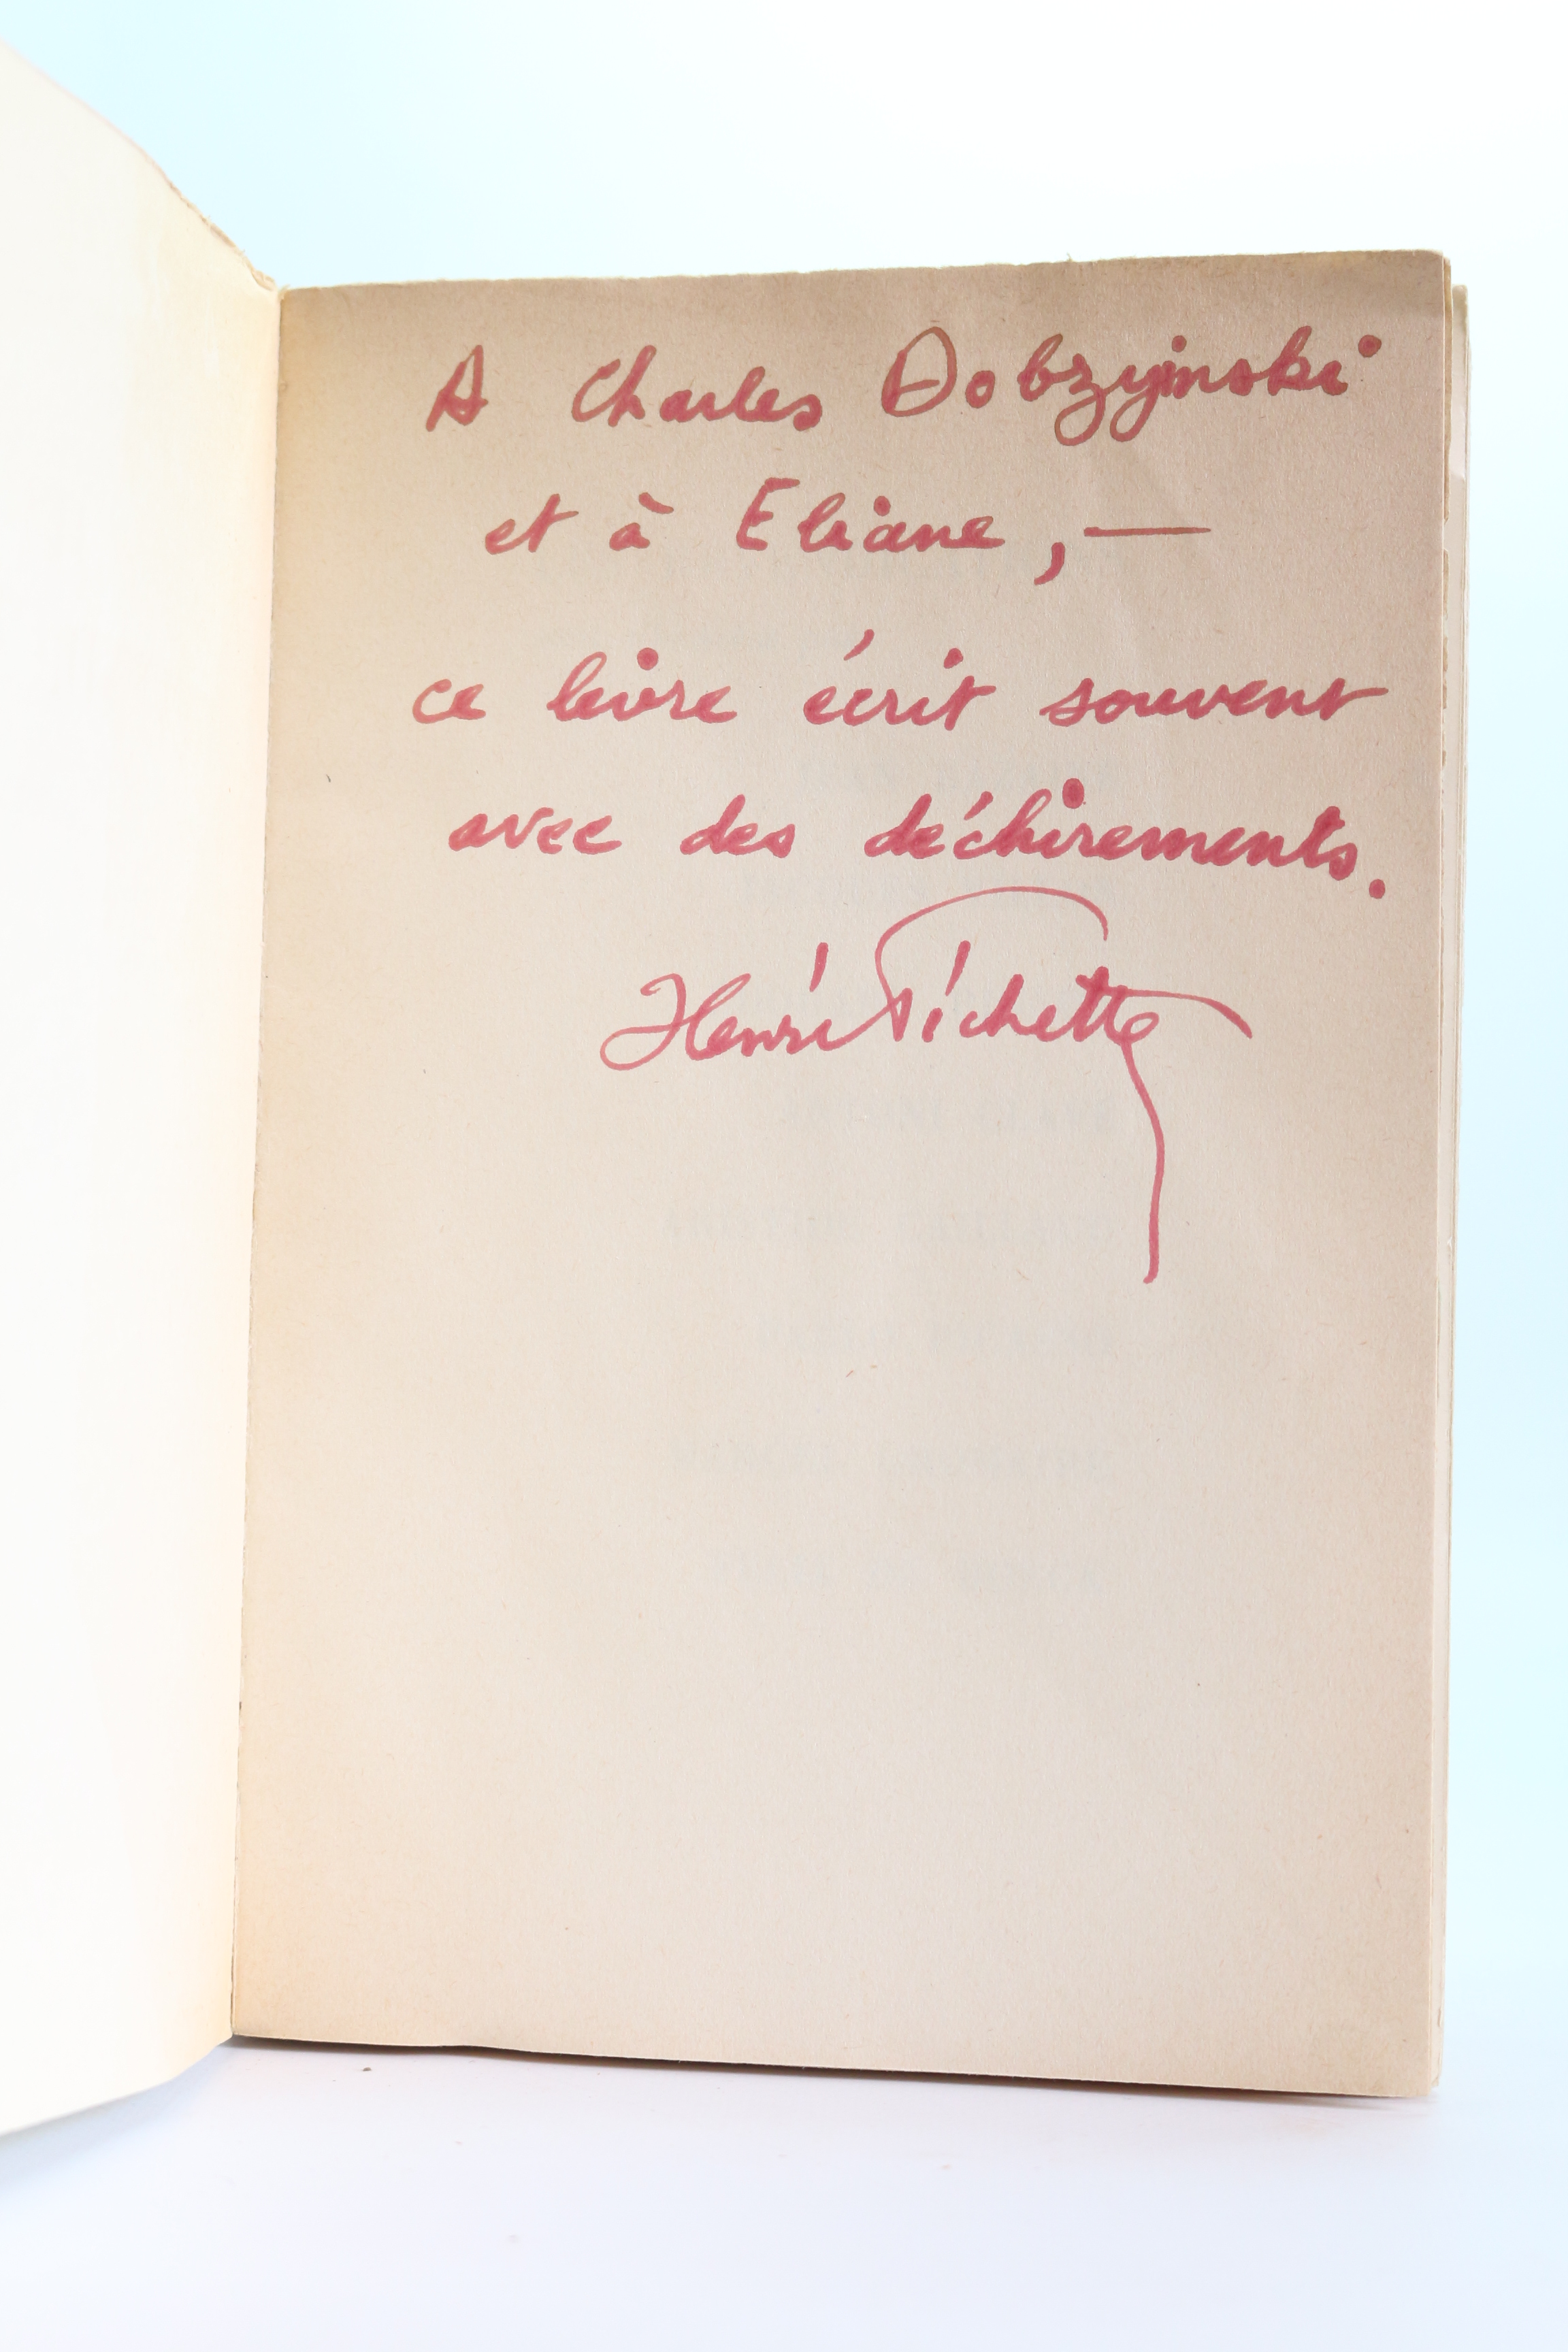 A Charles Dobzyinski
et à Eliane, —
ce livre écrit souvent
avec des déchirements.
Henri Pichette